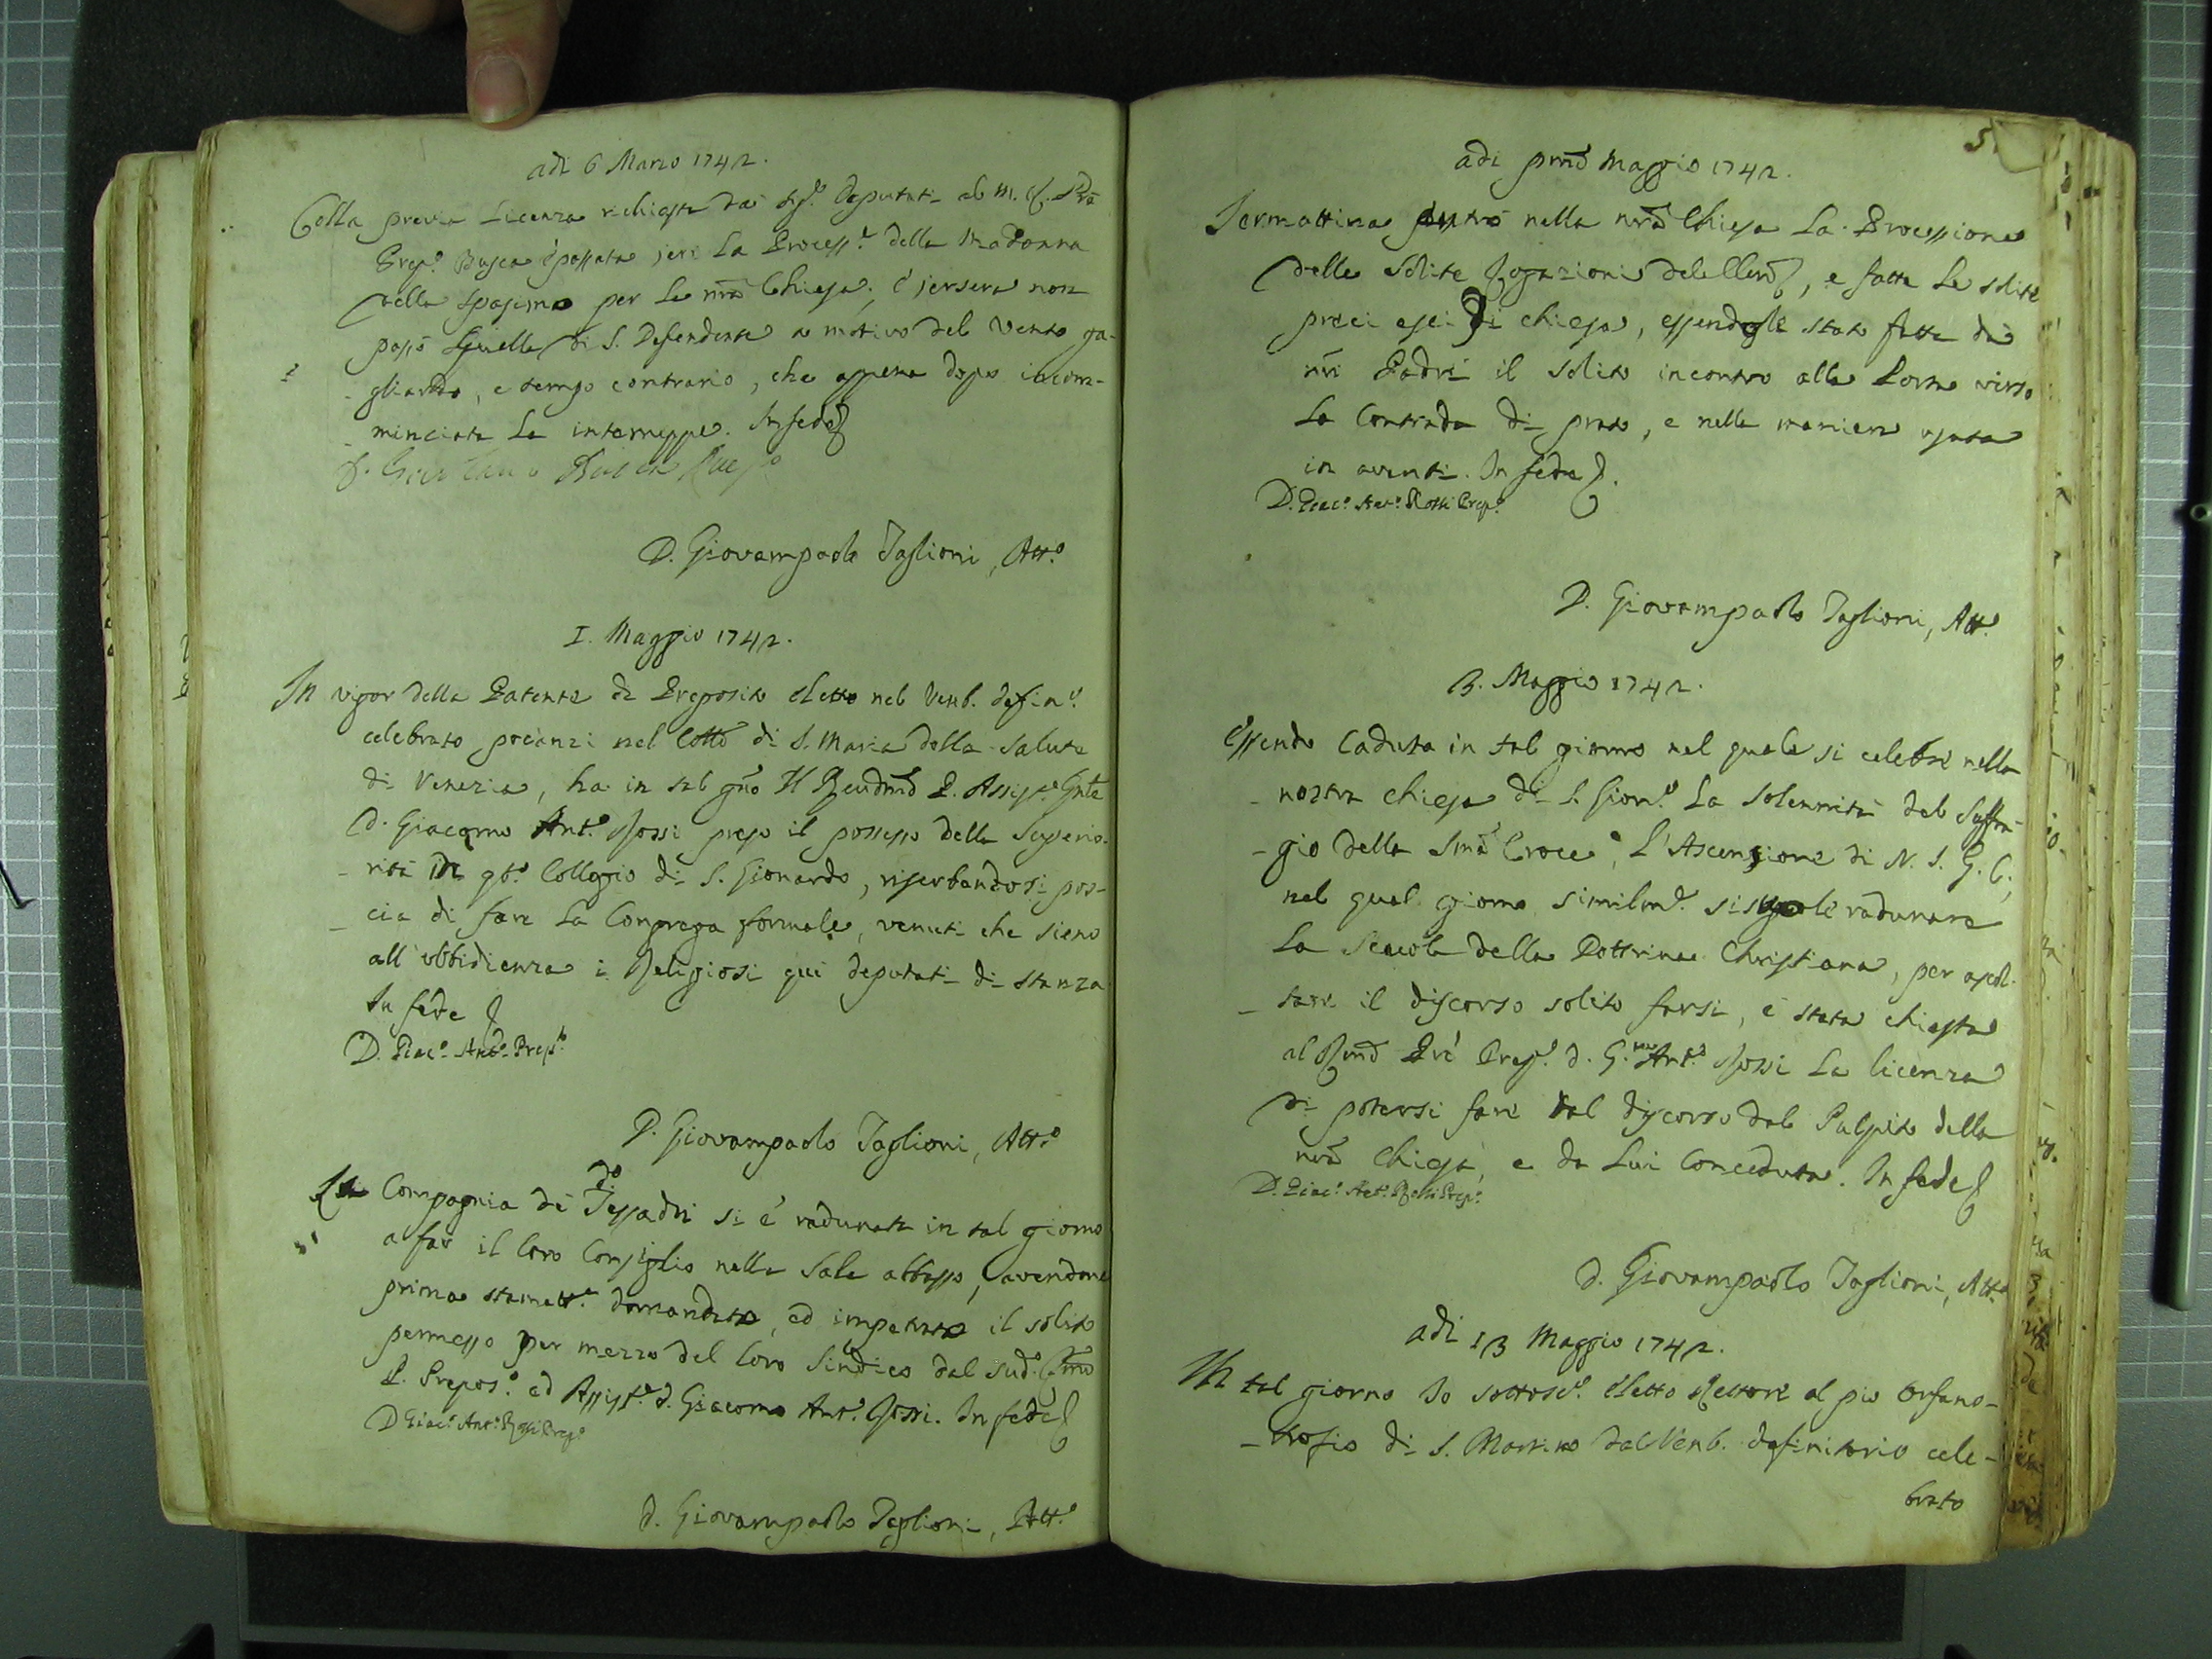 adi 6 Marzo 1742.
Colla previa Licenza richiesta dai Sig.i Deputati al M. R. Pre
Prep.o Busca è passata jeri La Process.e della Madonna
della Spasimo per la nrã Chiesa, e jersera non
passò Quella di S. Defendente a motivo del Vento ga-
gliardo, e tempo contrario, che appena dopo incom-
minciata La interruppe. In fede
D. Busca Prep.o
D. Giovampaolo Taglioni, Att.o
I. Maggio 1742.
In vigor della Patente di Preposito eletto nel Venb. defin.o
celebrato pocanzi nel Collo di S. Maria della Salute
di Venezia, ha in tal gño Il Reudmo P. Assist.e Gnle
D. Giacomo Ant.o Rossi preso il possesso della Superio-
rità in qto. Collegio di S. Gionardo, riserbandosi pos-
cia di fare La Congrega formale, venuti che sieno
all' ubbidienza i Religiosi qui deputati di stanza
In fede
D. Giac.o Ant.o Prep.to
D. Giovampaolo Taglioni, Att.o
La Compagnia di Tessadri si è radunata in tal giorno
a far il loro Consiglio nella Sala abbasso, avendone
prima stamatt.a domandato, ed impetrato il solito
permesso per mezzo del loro Sindico dal sud.o Rmo
P. Prepos.o ed Assist.e D. Giacomo Ant.o Rossi. In fede
D Giac.o Ant.o Rossi Prep.o
d. Giovampaolo Taglioni, Att.o
5
adi pmo Maggio 1742.
Jermattina entrò nella nrã Chiesa La Processione
delle Solite Rogazioni del Clero, e fatte Le solite
preci esci di chiesa, essendogli stato fatto da
nri Padri il solito incontro alla Porta verso
La Contrada di prato, e nella maniera usata
in avanti. In fede
D. Giac.o Ant.o Rossi Prep.o
D. Giovampaolo Taglioni, Att.o
3. Maggio 1742.
Essendo Caduta in tal giorno nel quale si celebra nella
nostra chiesa di S. Gion.o La Solennità del Suffra-
gio della Sma Croce, L'Ascensione di N. S. G. C.,
nel qual giorno similm.e si suole radunare
La Scuola della Dottrina Christiana, per ascol-
tare il discorso solito farsi, è stata chiesta
al Rmo Pre Prep.o d. G.mo Ant.o Rossi La licenza
di potersi fare tal discorso dal Pulpito della
nrã Chiesa, e da Lui Conceduta. In fede
D. Giac.o Ant.o Rossi Prep.o
d. Giovampaolo Taglioni, Att.o
adi 13 Maggio 1742.
In tal giorno Io sottosc.o eletto Rettore al pio Orfano-
trofio di S. Martino dal Venb. definitorio cele-
brato